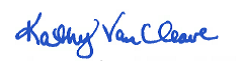 Kathy Van Cleave